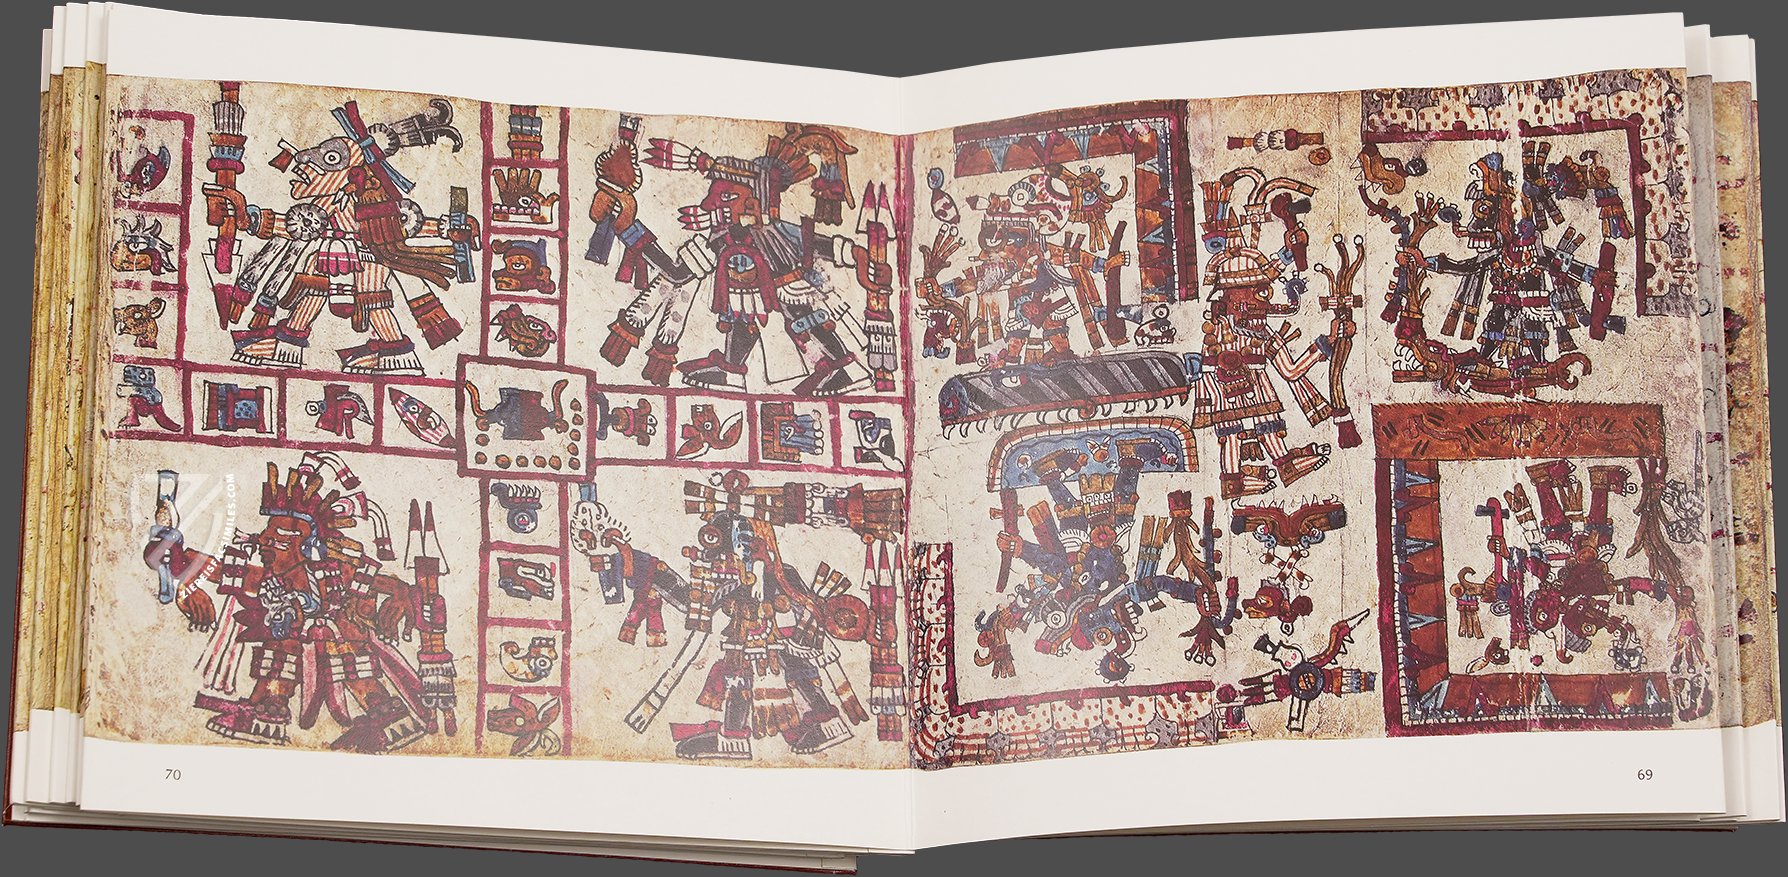 ZIEREISFACSIMILES.COM
70
69